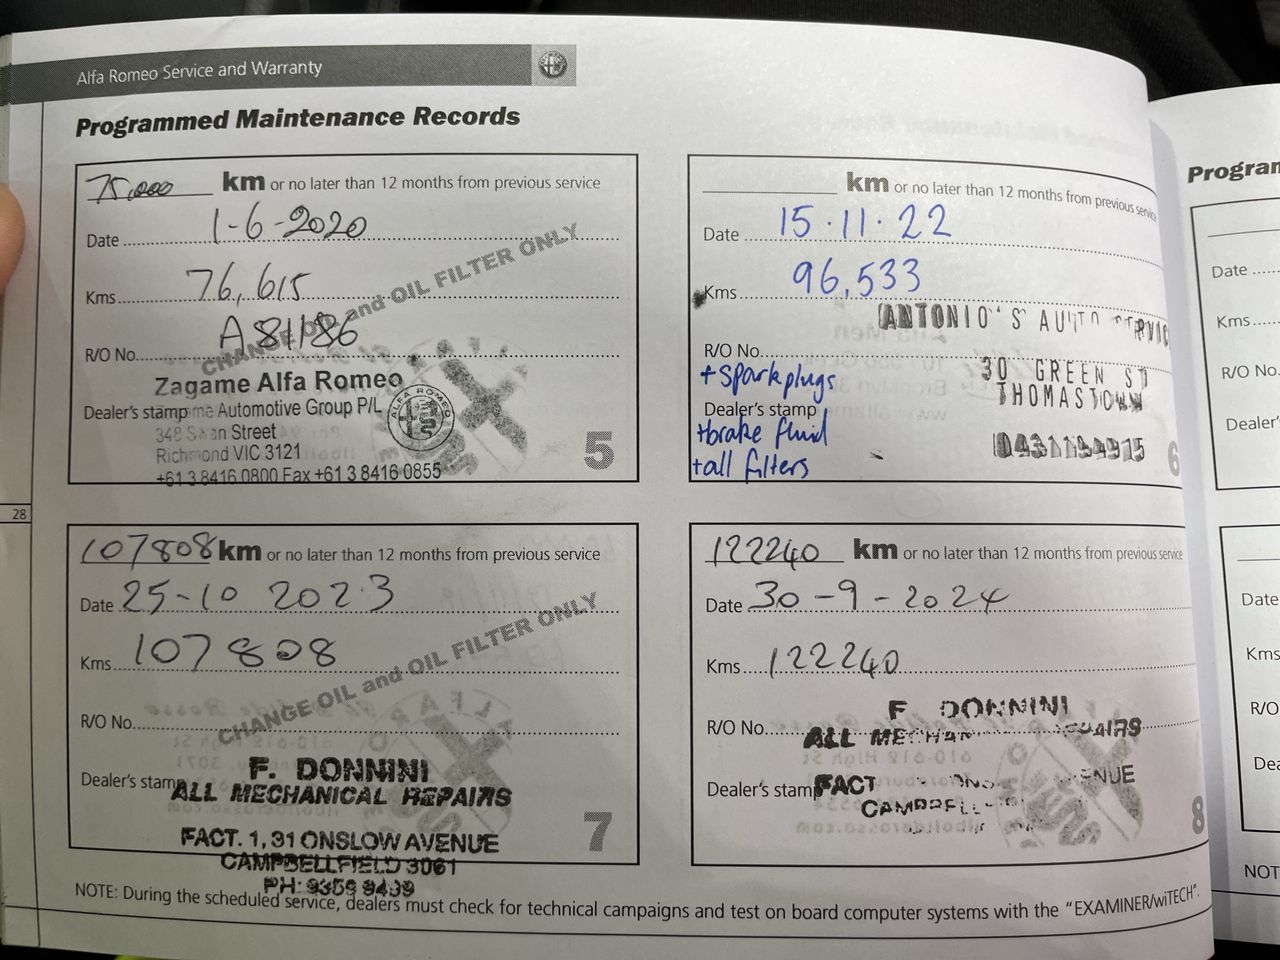 Alfa Romeo Service and Warranty
Programmed Maintenance Records
75,000 km or no later than 12 months from previous service
Date 1-6-2020
Kms 76,615
R/O No. A81186
CHANGE OIL and OIL FILTER ONLY
Zagame Alfa Romeo
Dealer's stamp Automotive Group P/L
348 Swan Street
Richmond VIC 3121
+61 3 8416 0800 Fax +61 3 8416 0855
ALFA ROMEO
5
km or no later than 12 months from previous service
Date 15.11.22
Kms 96,533
ANTONIO'S AUTO
R/O No.
30 GREEN ST
+ spark plugs
THOMASTOWN
Dealer's stamp
+brake fluid
0431194915
+all filters
6
28
107808 km or no later than 12 months from previous service
Date 25-10 2023
Kms 107808
CHANGE OIL and OIL FILTER ONLY
R/O No.
F. DONNINI
Dealer's stamp
ALL MECHANICAL REPAIRS
FACT. 1, 31 ONSLOW AVENUE
CAMPBELLFIELD 3061
PH: 9359 9439
7
122240 km or no later than 12 months from previous service
Date 30-9-2024
Kms 122240
R/O No.
F DONNINI
ALL REPAIRS
Dealer's stamp
FACT
8
NOTE: During the scheduled service, dealers must check for technical campaigns and test on board computer systems with the "EXAMINER/wiTECH".
Date
Kms
R/O No.
Date
Kms
R/O
NOT